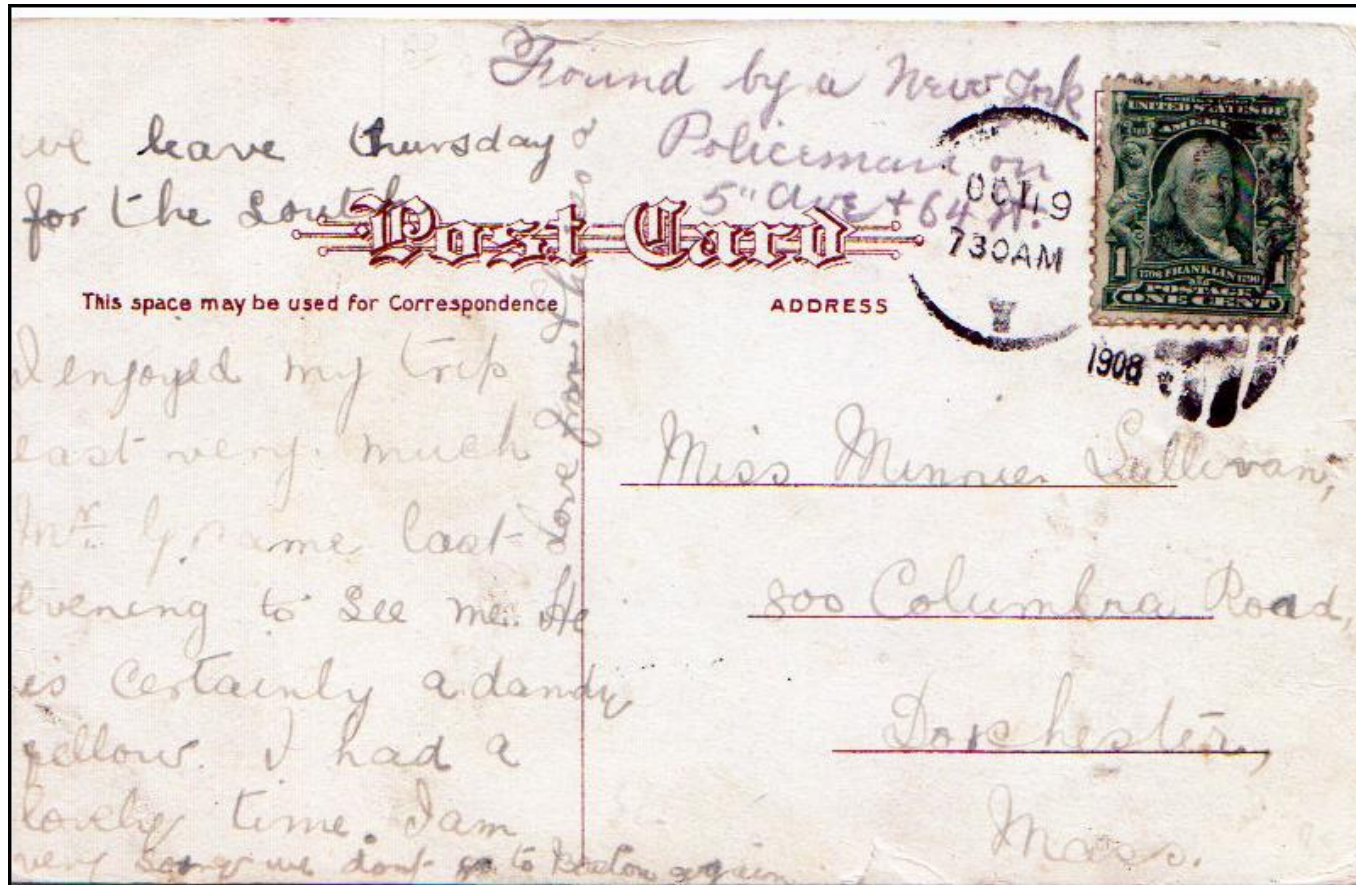 Found by a New York
Policeman on
5" Ave + 64 St.
we leave thursday
for the South
Post Card
This space may be used for Correspondence
ADDRESS
OCT 19
730AM
1908
UNITED STATES OF
AMERICA
1706 FRANKLIN 1790
POSTAGE
1 1
ONE CENT
I enjoyed my trip
east very much
Mr. came last
evening to See me. He
is Certainly a dandy
fellow. I had a
lovely time. I am
very sorry we dont go to Boston again
Love from
Miss Minnie Sullivan,
800 Columbia Road,
Dorchester,
Mass.